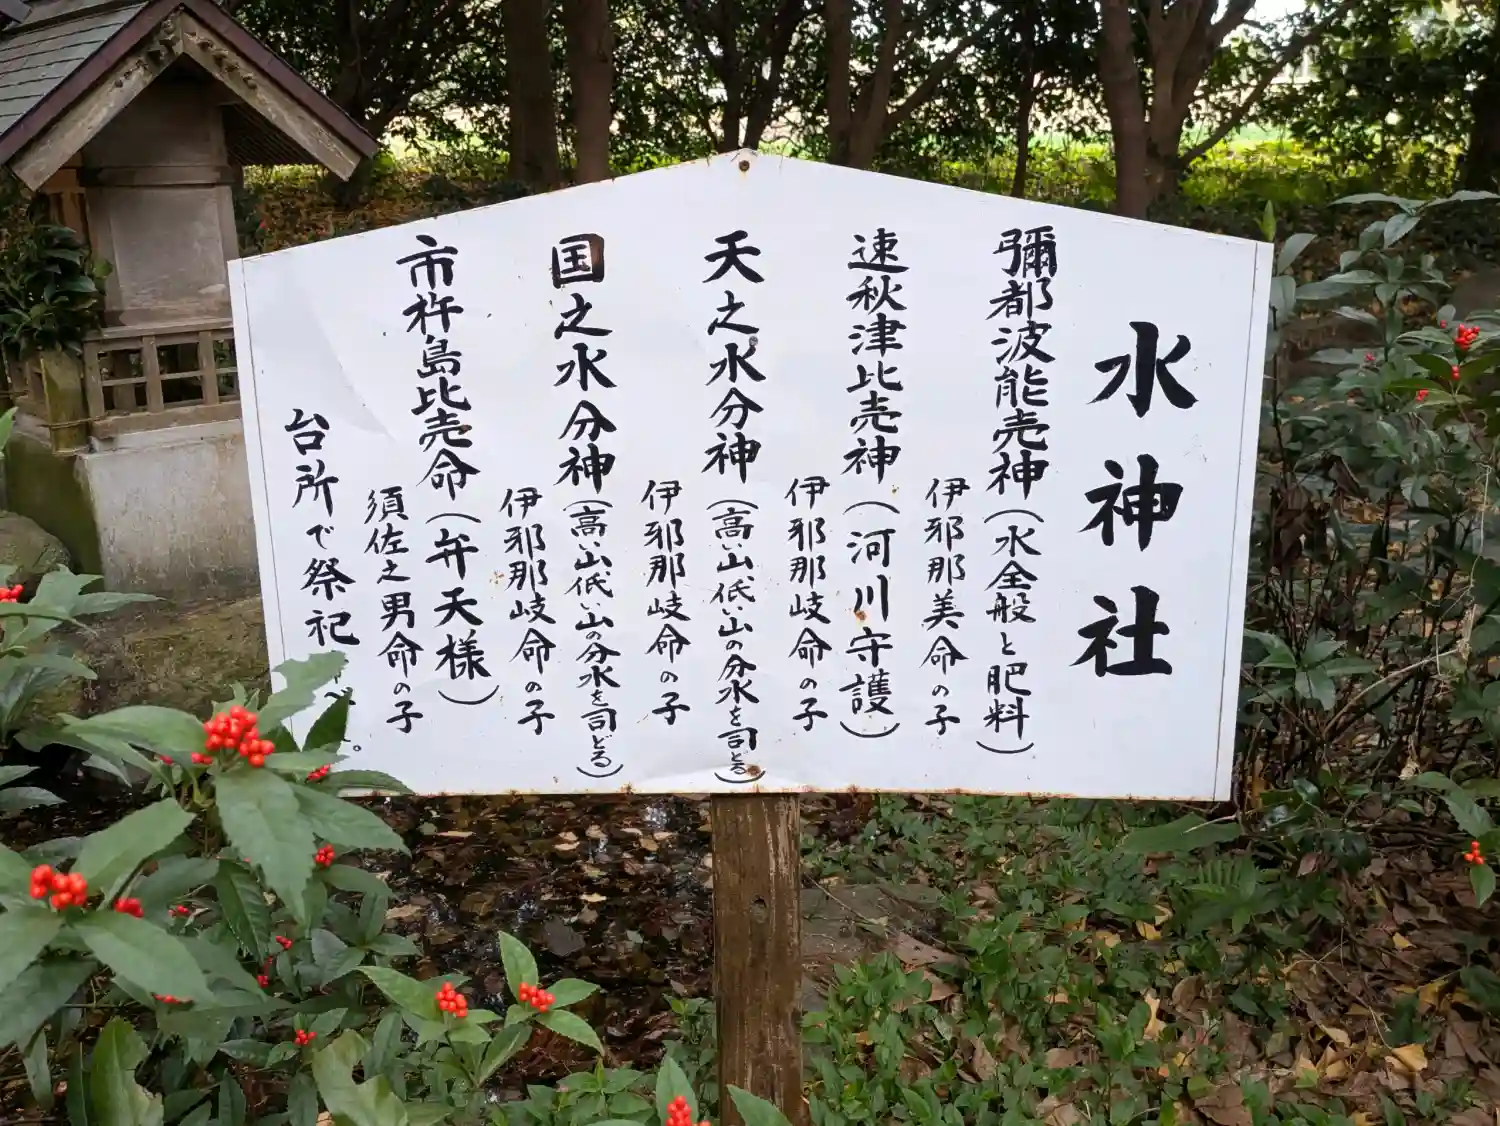 水神社
彌都波能売神(水全般と肥料)
伊邪那美命の子
速秋津比売神(河川守護)
伊邪那岐命の子
天之水分神(高い山低い山の分水を司どる)
伊邪那岐命の子
国之水分神(高い山低い山の分水を司どる)
伊邪那岐命の子
市杵島比売命(弁天様)
須佐之男命の子
台所で祭祀